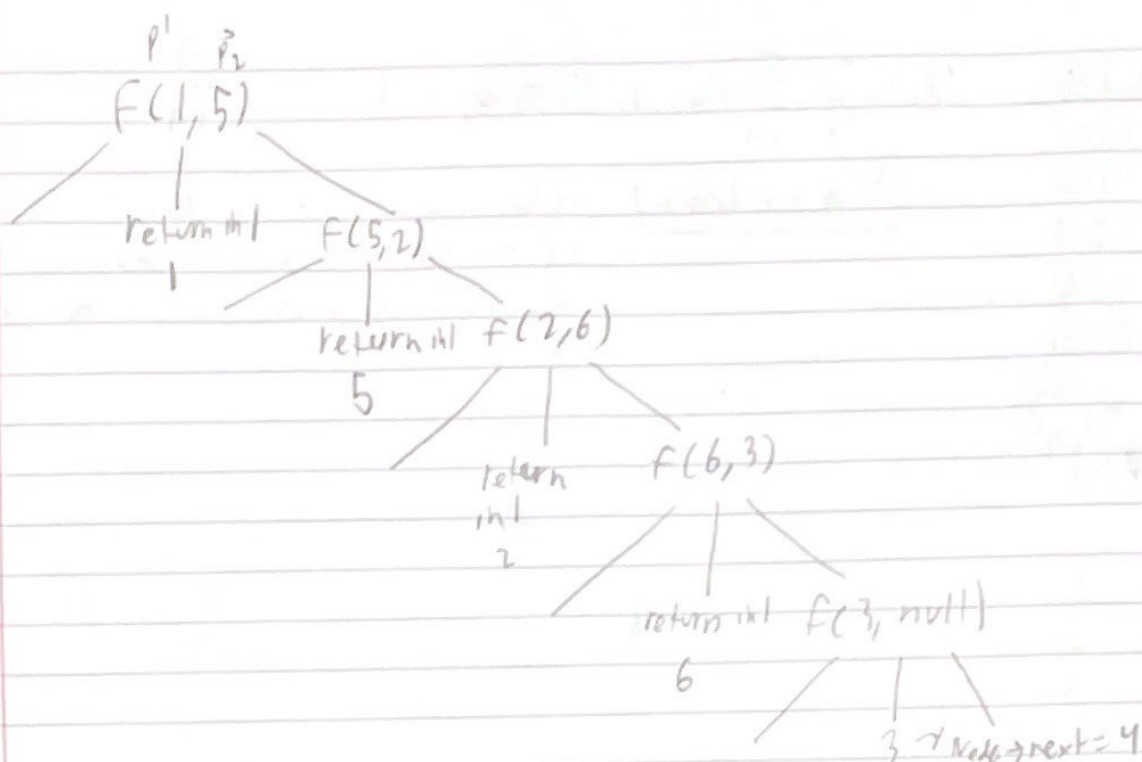 p1 p2
F(1,5)
return int F(5,2)
1
return int F(2,6)
5
return F(6,3)
int
2
return int F(3, null)
6
3 Node→next = 4